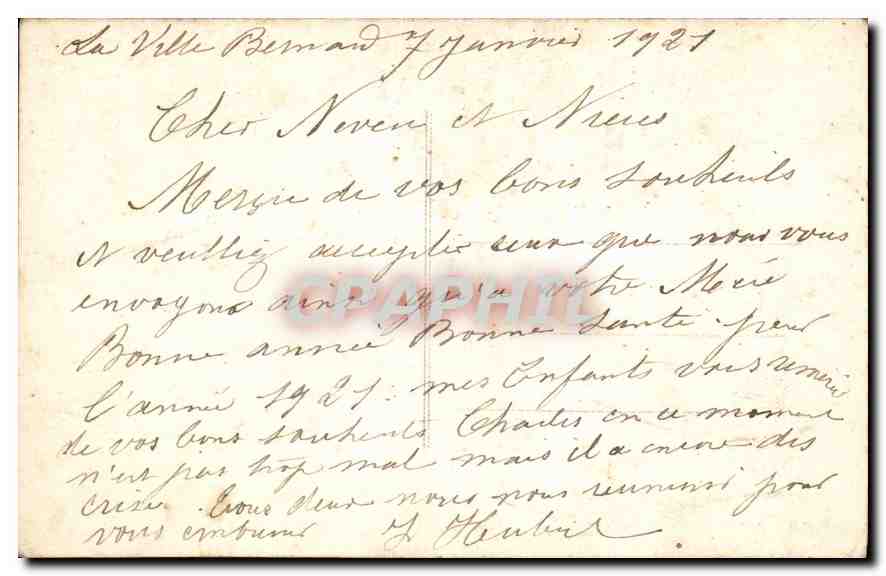 La Ville Bernard 7 Janvier 1921
Cher Neveu et Nieces
Mercie de vos bons souheuits
et veuilliez accepter ceux que nous vous
envoyons ainsi qu'a votre Mère
Bonne année Bonne Santé pour
l'année 1921. mes Enfants vous remerie
de vos bons souheuits Charles en ce moment
n'est pas trop mal mais il a encore des
crises. Tous deux nous nous reunini pour
vous embrasser J Hubert
CPAPHIL